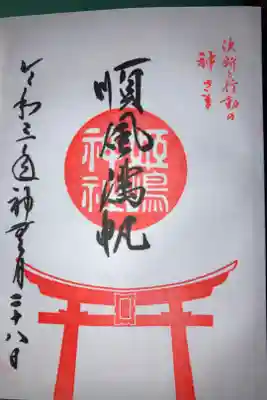 決断と行動の
神さま
順風満帆
姫嶋
神社
令和三年神無月二十八日